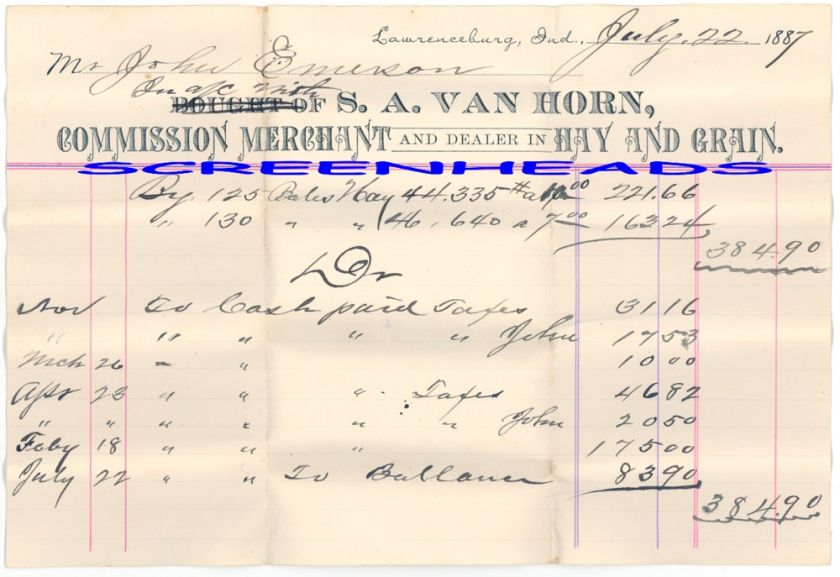 Lawrenceburg, Ind., July. 22 1887
Mr John Emerson
In a/c with
BOUGHT OF S. A. VAN HORN,
COMMISSION MERCHANT AND DEALER IN HAY AND GRAIN.
SCREENHEADS
By 125 Bales Hay 44.335 # a 10 00 221.66
" 130 " " 46.640 a 7 00 163 24
384.90
Dr
Nov To Cash paid Taxes 31 16
" " " " " John 17 53
Mch 26 " " 10 00
Apr 23 " " " Taxes 46 82
" " " " " " John 20 50
Feby 18 " " 175 00
July 22 " " To Ballance 83 90
384.90